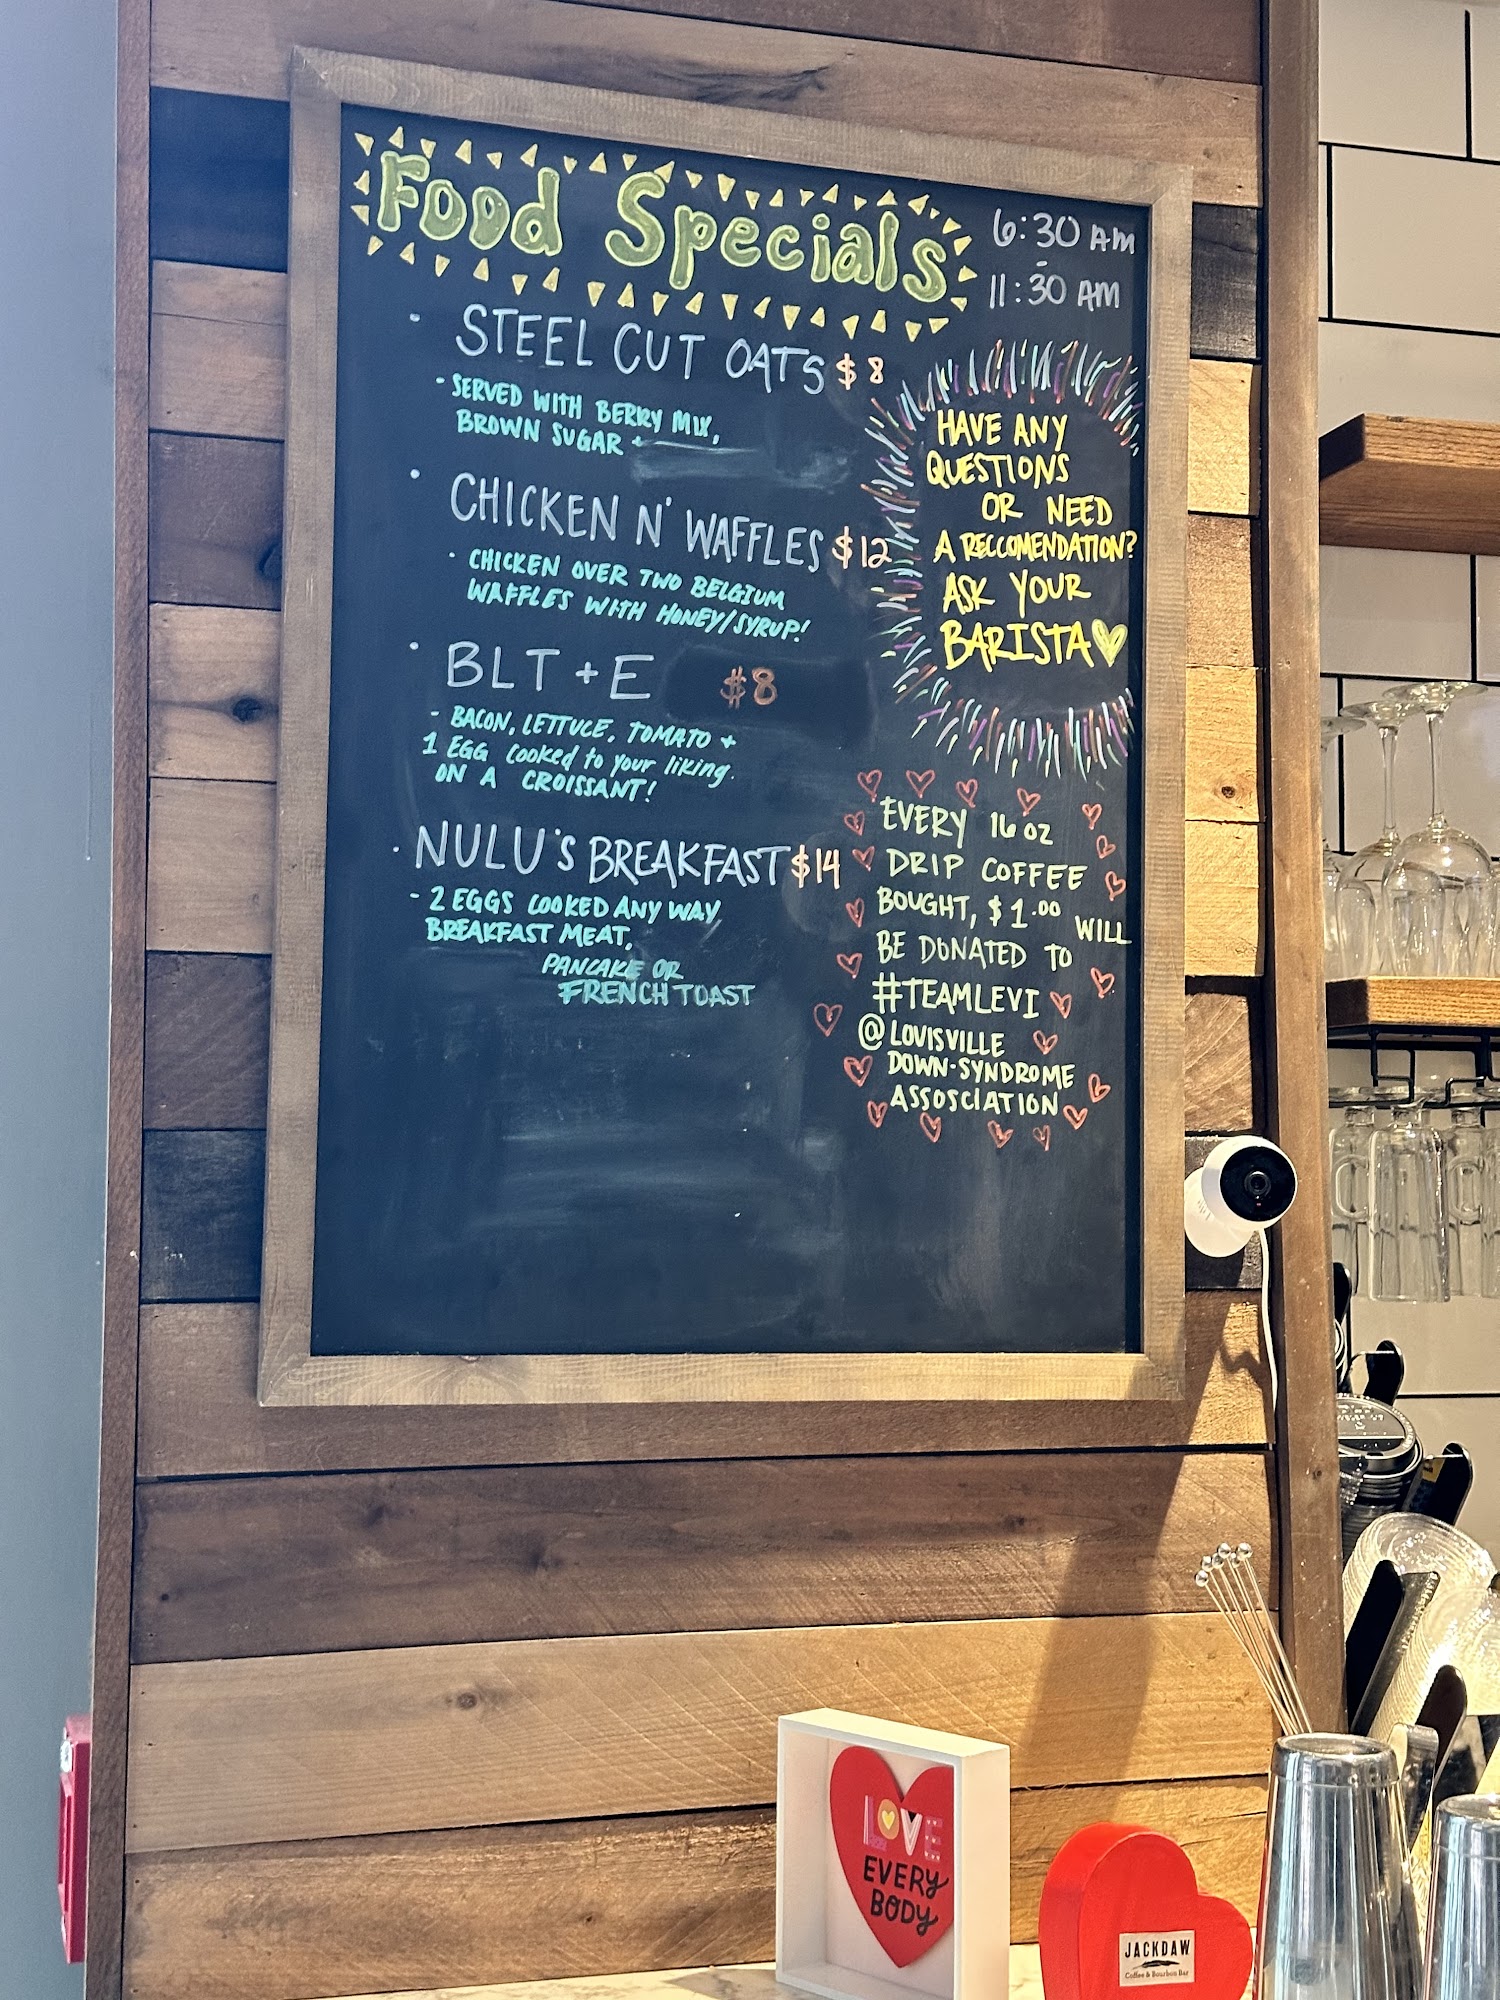 Food Specials
6:30 AM
-
11:30 AM
• STEEL CUT OATS $8
- SERVED WITH BERRY MIX,
BROWN SUGAR +
• CHICKEN N' WAFFLES $12
• CHICKEN OVER TWO BELGIUM
WAFFLES WITH HONEY/SYRUP!
• BLT + E $8
- BACON, LETTUCE, TOMATO +
1 EGG cooked to your liking.
ON A CROISSANT!
• NULU'S BREAKFAST $14
- 2 EGGS COOKED ANY WAY,
BREAKFAST MEAT,
PANCAKE OR
FRENCH TOAST
HAVE ANY
QUESTIONS
OR NEED
A RECCOMENDATION?
ASK YOUR
BARISTA
EVERY 16 OZ
DRIP COFFEE
BOUGHT, $1.00 WILL
BE DONATED TO
#TEAMLEVI
@LOUISVILLE
DOWN-SYNDROME
ASSOSCIATION
LOVE
EVERY
BODY
JACKDAW
Coffee & Bourbon Bar